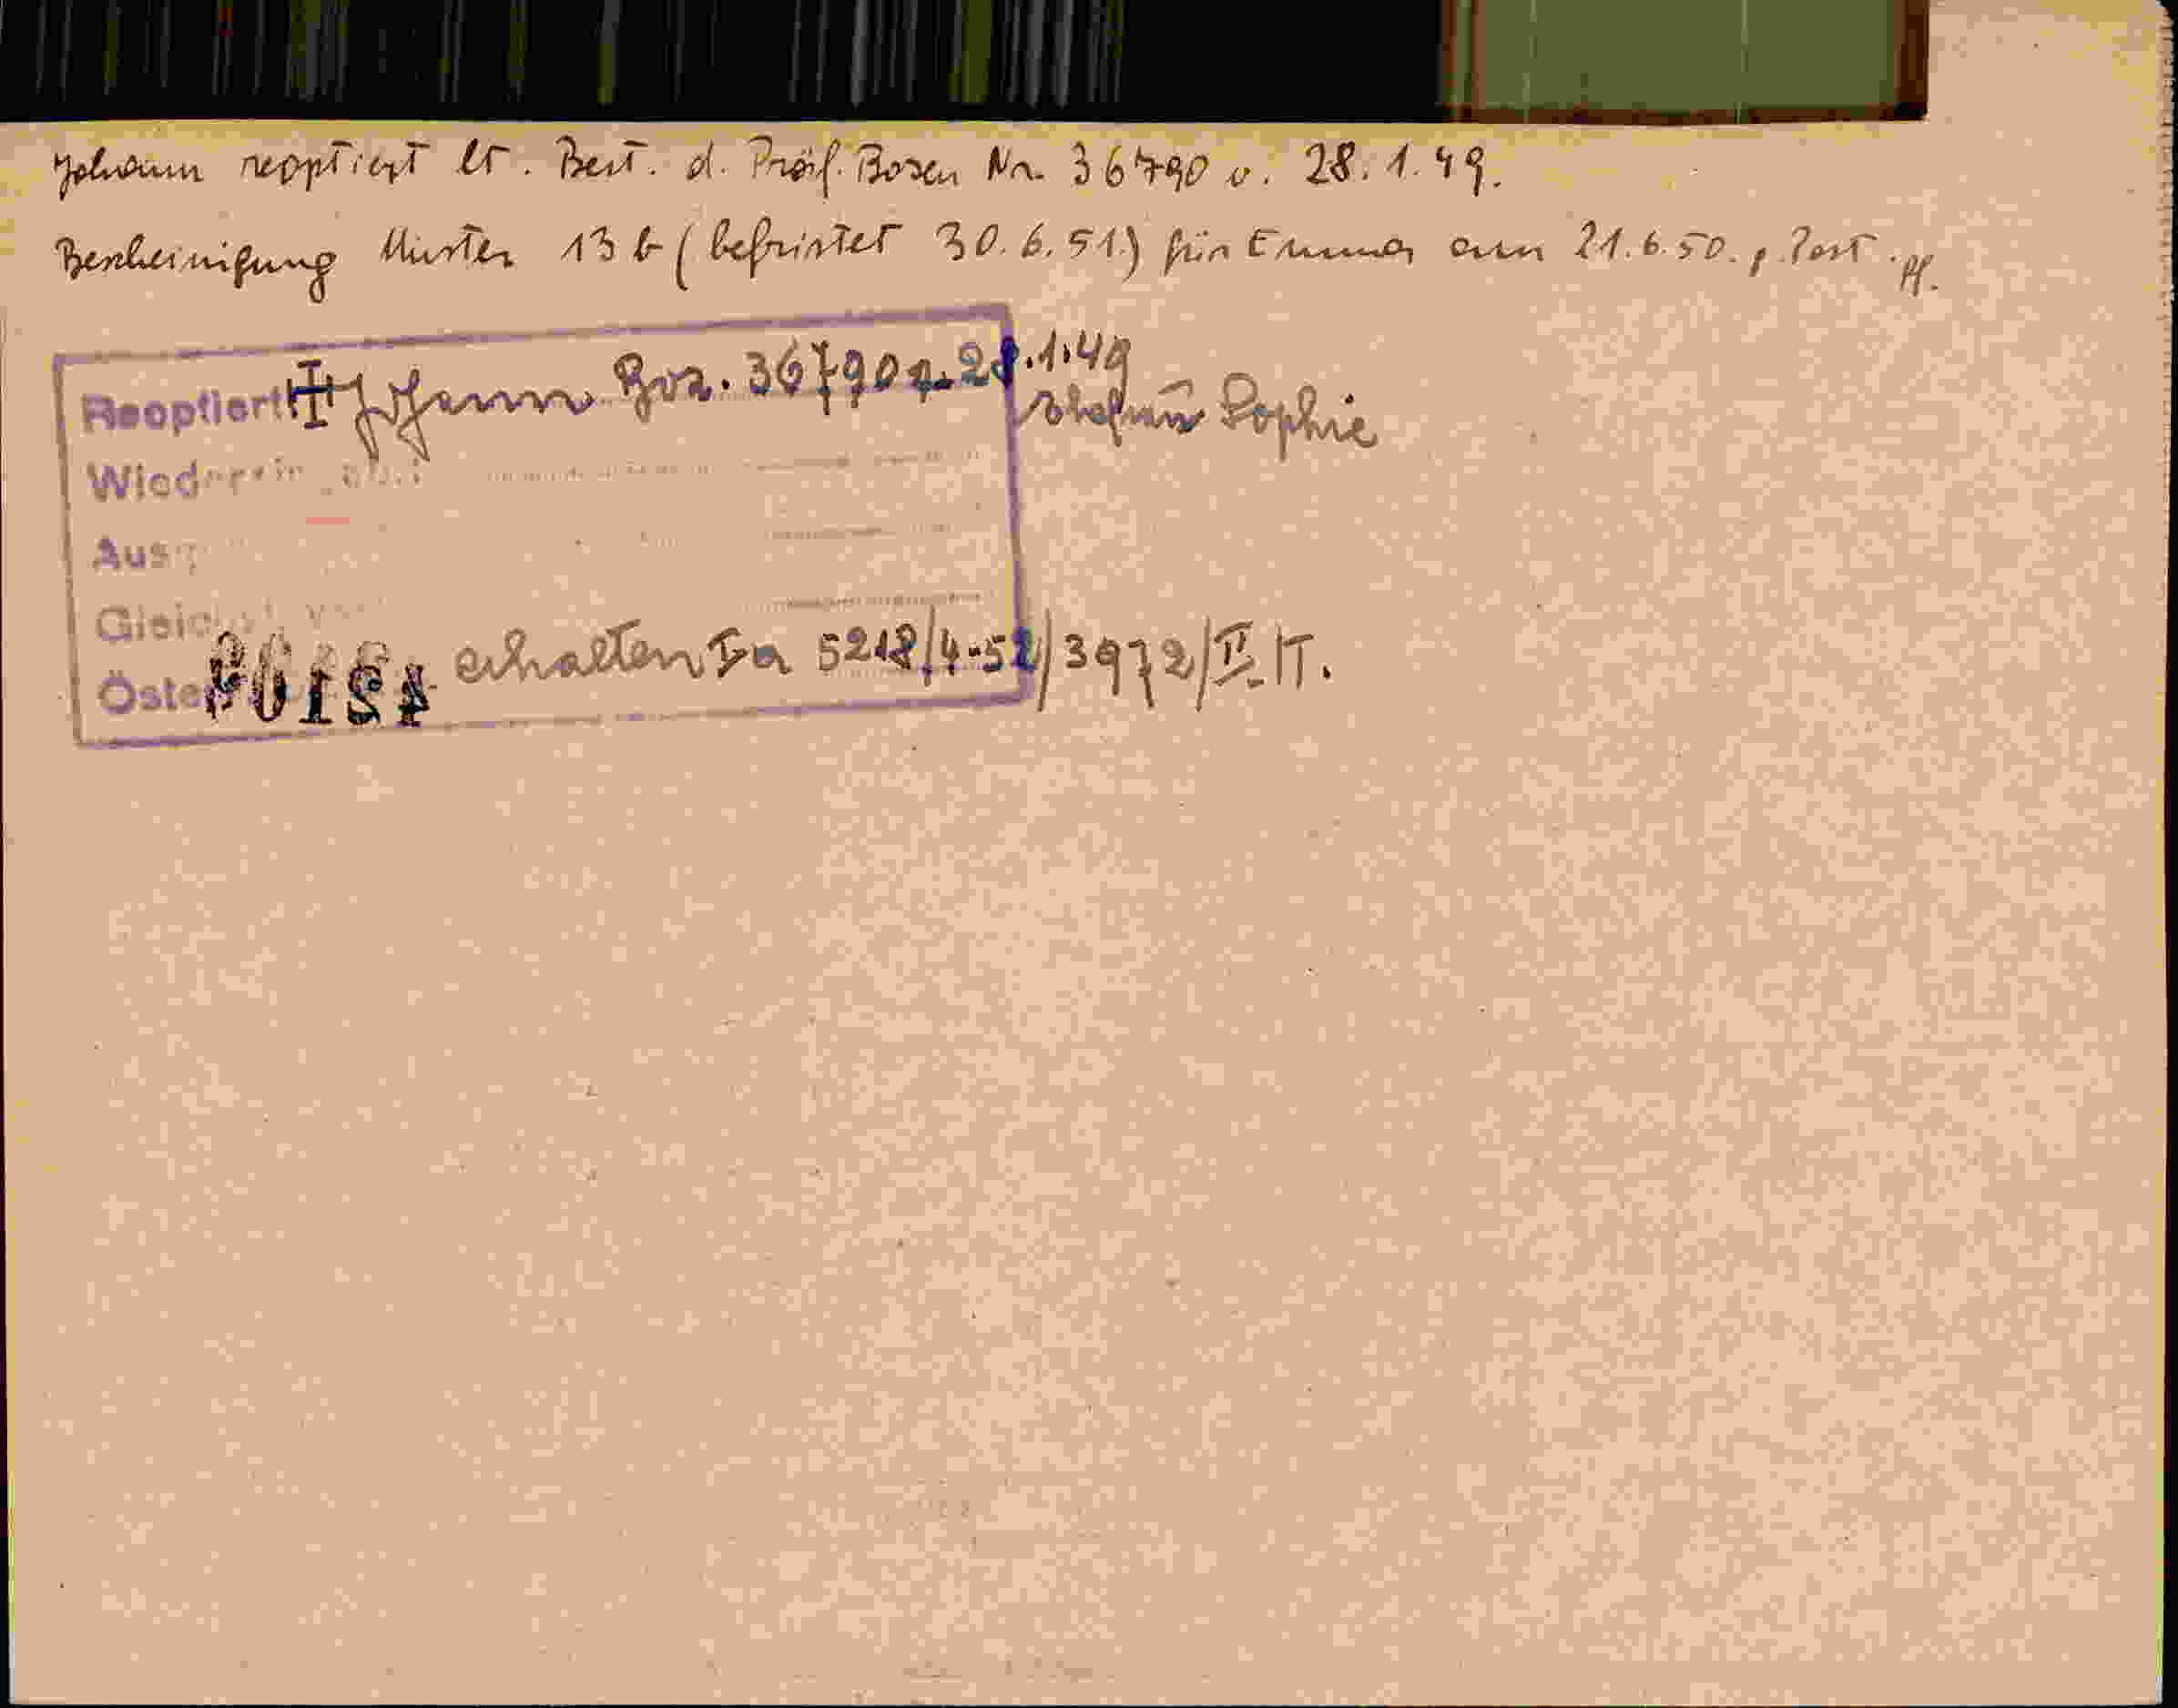 Johann reoptiert lt. Best. d. Präf. Bozen Nr. 36790 v. 28.1.49.
Bescheinigung Muster 13 b (befristet 30.6.51.) für Emma am 21.6.50. p. Post. Pf.
Reoptiert Johann Boz. 36790 v. 28.1.49
Stefanie Sophie
Wieder
Aus
Gleich
Öste erhalten Ia 5218/4-52/3972/II.IT.